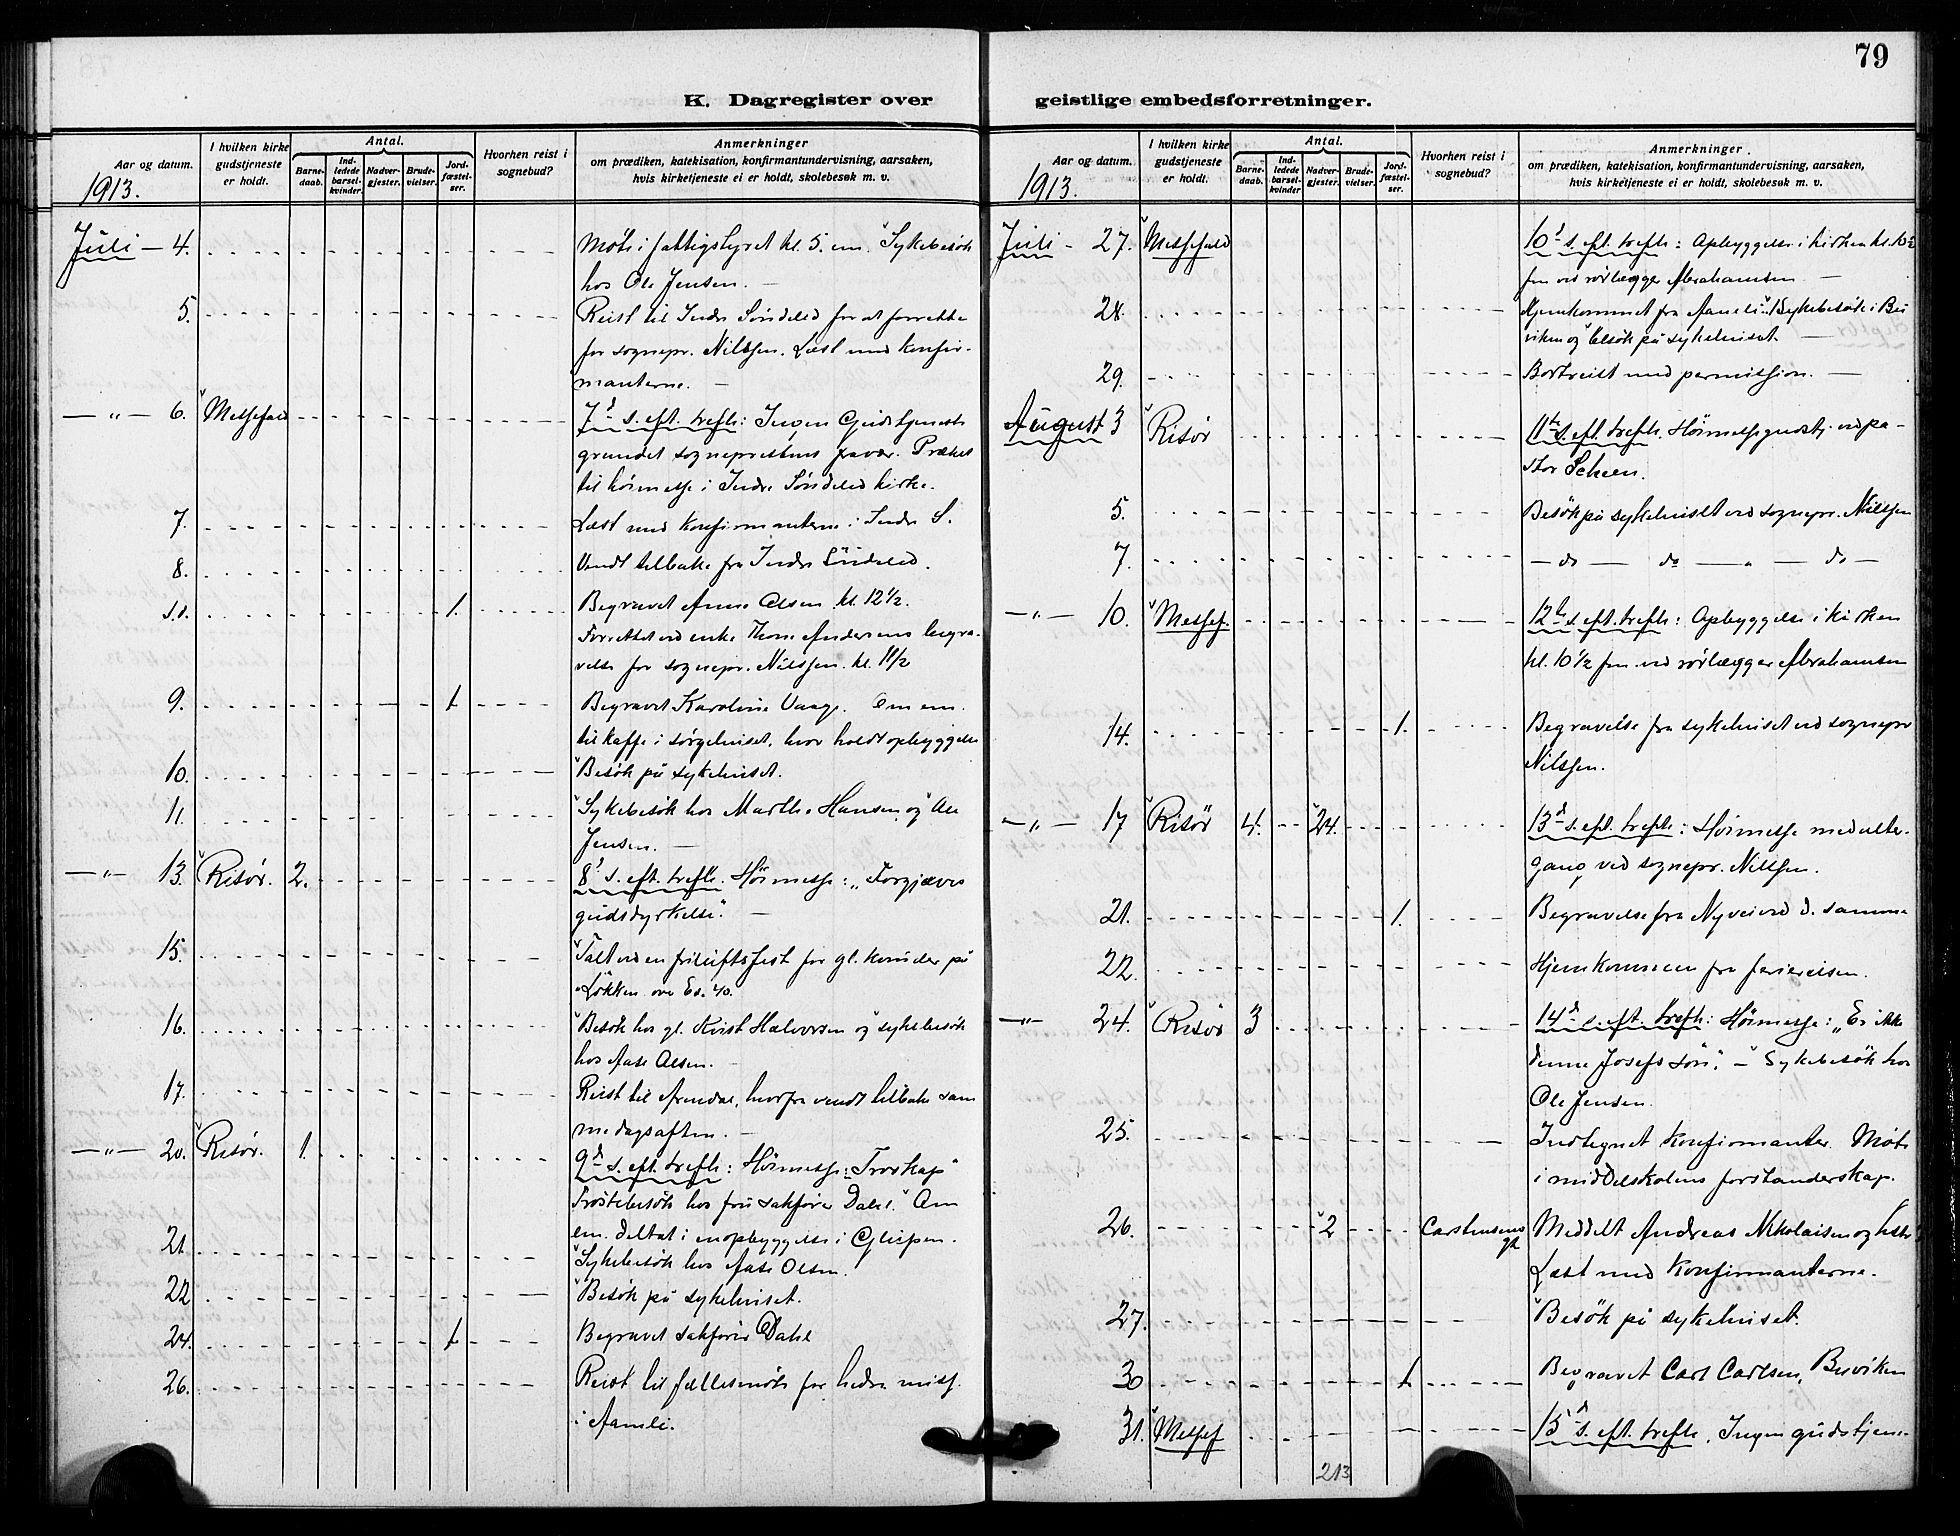 79
K. Dagregister over geistlige embedsforretninger.
Aar og datum.
I hvilken kirke gudstjeneste er holdt.
Antal.
Barne-daab.
Ind-ledede barsel-kvinder.
Nadver-gjester.
Brude-vielser.
Jord-fæstel-ser.
Hvorhen reist i sognebud?
Anmerkninger
om prædiken, katekisation, konfirmantundervisning, aarsaken,
hvis kirketjeneste ei er holdt, skolebesøk m. v.
1913.
Juli – 4. Møte i fattigstyret kl. 5. em. Sykebesök
hos Ole Jensen. –
5. Reist til Indre Söndeled for at forrette
for sognepr. Nilssen. Læst med konfir-
manterne. –
– " – 6. Messefald 7d s. eft. trefh: Ingen Gudstjeneste
grundet sogneprestens fravær. Præket
til höimesse i Indre Söndeled kirke.
7. Læst med konfirmanterne i Indre S.
8. Vendt tilbake fra Indre Söndeled.
1. Begravet Anne Olsen kl. 12 1/2.
Forrettet ved enke Thone Andersens begra-
velse for sognepr. Nilssen. kl. 11 1/2
9. 1 Begravet Karoline Vaage. Om em.
til kaffe i sörgehuset, hvor holdt opbyggelse
10. Besök på sykehuset.
11. Sykebesök hos Marthe Hansen og Ole
Jensen. –
– " – 13. Risör. 2. 8d s. eft. trefh. Höimesse: „Forgjæves
gudsdyrkelse". –
15. Talt ved en friluftsfest for gl. kvinder på
Lökken over Es. 40.
16. Besök hos gl. Kvist Halvorsen og sykebesök
hos Aase Olsen. –
17. Reist til Arendal, hvorfra vendt tilbake sam
me dags aften. –
– " – 20. Risör. 1. 9d s. eft. trefh: Höimesse: Troskap"
Tröstebesök hos fru sakförer Dahl. Om
em. deltat i en opbyggelse i Glipen.
21. Sykebesök hos Aase Olsen.
22 Besök på sykehuset.
24. 1 Begravet sakförer Dahl
26. Reist til fællesmöte for hedn. miss.
i Aamli.
Aar og datum.
I hvilken kirke gudstjeneste er holdt.
Antal.
Barne-daab.
Ind-ledede barsel-kvinder
Nadver-gjester.
Brude-vielser.
Jord-fæstel-ser.
Hvorhen reist i sognebud?
Anmerkninger.
om prædiken, katekisation, konfirmantundervisning, aarsaken,
hvis kirketjeneste ei er holdt, skolebesøk m. v.
1913.
Juli – 27. Messefald 10d s. eft. trefh: Opbyggelse i kirken kl. 10 1/2
fm ved rörlægger Abrahamsen –
28. Hjemkommet fra Aamli. Sykebesök i Bu
viken og besök på sykehuset –
29. Bortreist med permission. –
August 3 Risör 11te s. eft. trefh. Höimessegudstj. ved pa-
stor Scheen.
5. Besök på sykehuset ved sognepr. Nilssen
7. – do – do – " – do –
– " – 10. Messef. 12te s. eft. trefh: Opbyggelse i kirken
kl. 10 1/2 fm. ved rörlægger Abrahamsen
14. 1. Begravelse fra sykehuset ved sognepr
Nilssen.
– " – 17 Risör 4. 24. 13d s. eft. trefh: Höimesse med alter-
gang ved sognepr. Nilssen.
21. 1. Begravelse fra Nyvei ved d. samme
22. Hjemkommen fra feriereisen.
– " – 24. Risör 3 14d s. eft. trefh: Höimesse: „Er ikke
denne Josefs sön". – Sykebesök hos
Ole Jensen.
25. Indtegnet konfirmanter. Møte
i middelskolens forstanderskap.
26. 2 Carstensens gt Meddelt Andreas Nikolaisen og hustr
Læst med konfirmanterne.
27. Besök på sykehuset.
30 1 Begravet Carl Carlsen, Buviken
31. Messef 15d s. eft. trefh. Ingen gudstjene-
213